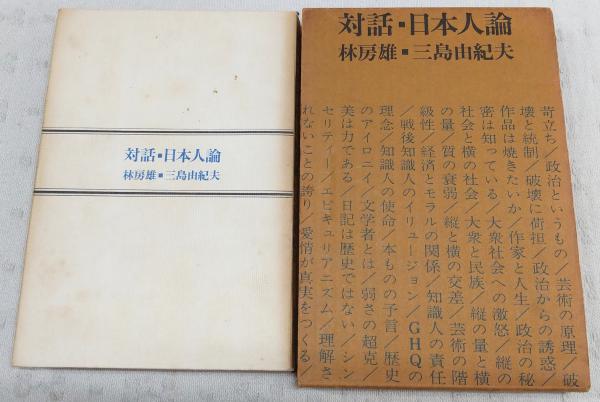 対話■日本人論
林房雄■三島由紀夫
対話■日本人論
林房雄■三島由紀夫
苛立ち／政治というもの／芸術の原理／破
壊と統制／破壊に荷担／政治からの誘惑／
作品は焼きたいか／作家と人生／政治の秘
密は知っている／大衆社会への激怒／縦の
社会と横の社会／大衆と民族／縦の量と横
の量／質の衰弱／縦と横の交差／芸術の階
級性／経済とモラルの関係／知識人の責任
／戦後知識人のイリュージョン／GHQの
理念／知識人の使命／本ものの予言／歴史
のアイロニイ／文学者とは／弱さの超克／
美は力である／日記は歴史ではない／シン
セリティー／エピキュリアニズム／理解さ
れないことの誇り／愛情が真実をつくる／